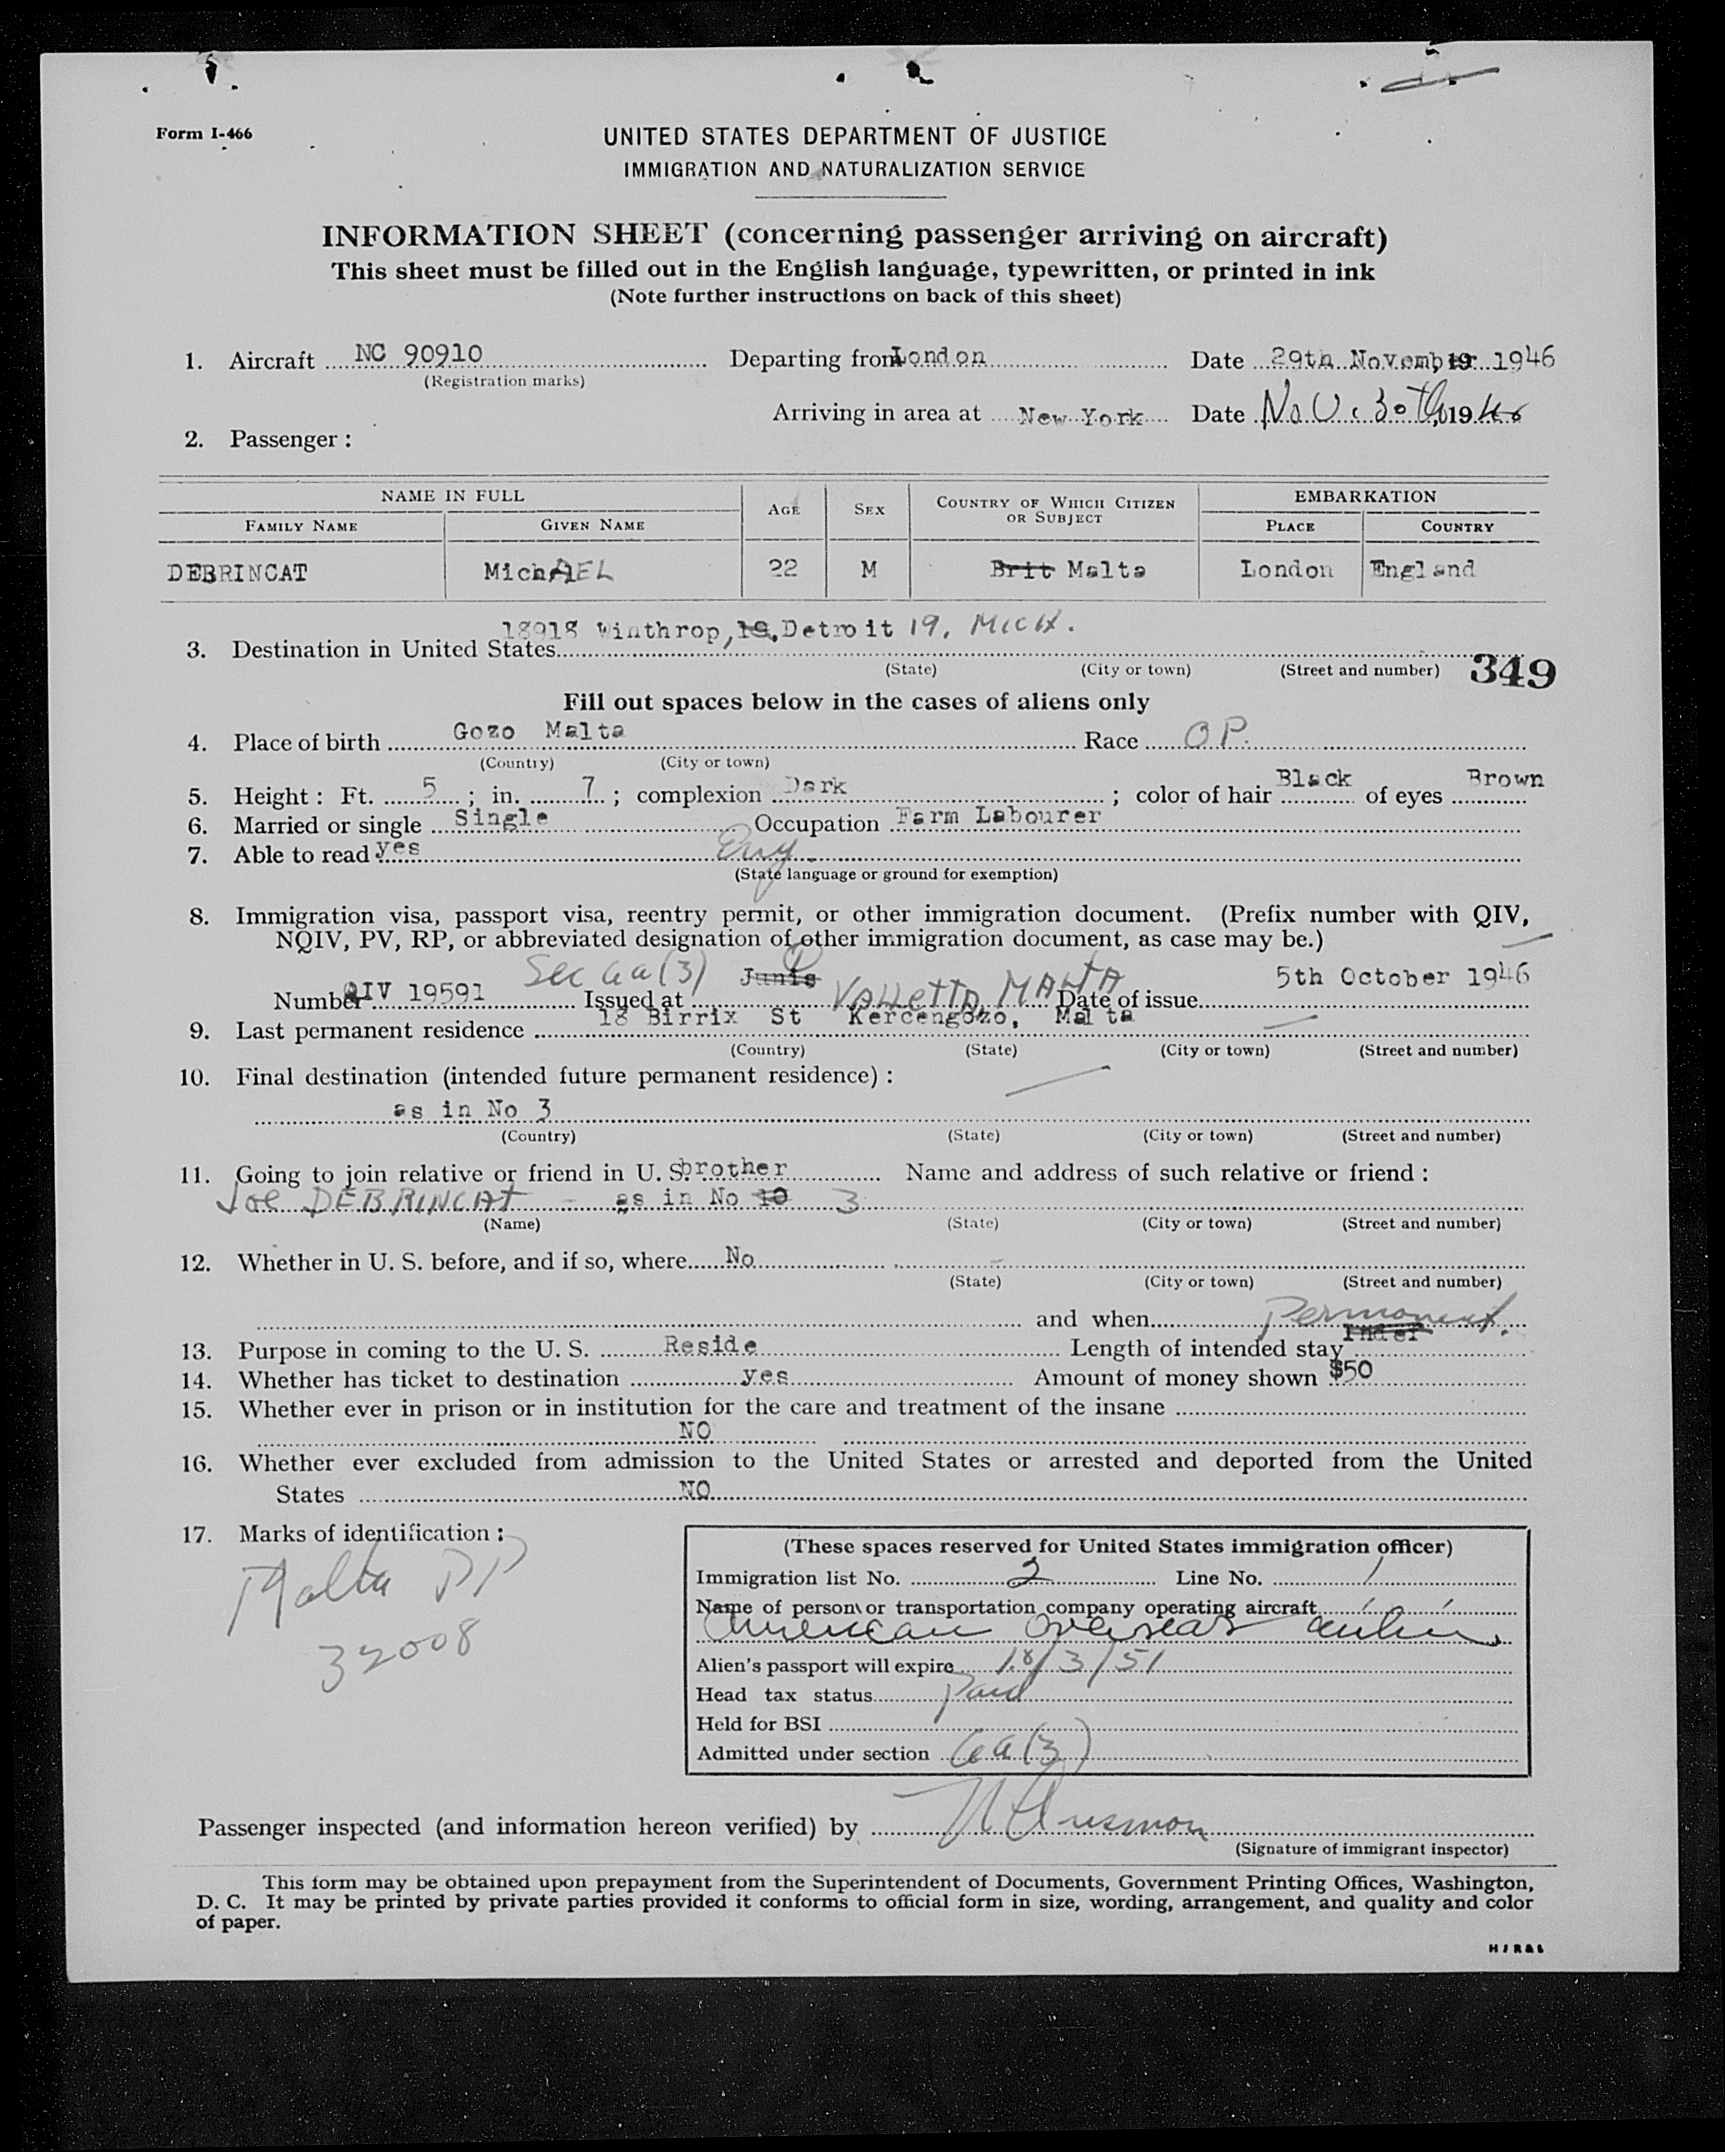 Form I-466
UNITED STATES DEPARTMENT OF JUSTICE
IMMIGRATION AND NATURALIZATION SERVICE
INFORMATION SHEET (concerning passenger arriving on aircraft)
This sheet must be filled out in the English language, typewritten, or printed in ink
(Note further instructions on back of this sheet)
1. Aircraft NC 90910 Departing from London Date 29th November, 19 1946
(Registration marks)
Arriving in area at New York Date Nov. 30th, 1946
2. Passenger:
NAME IN FULL AGE SEX COUNTRY OF WHICH CITIZEN OR SUBJECT EMBARKATION
FAMILY NAME GIVEN NAME PLACE COUNTRY
DEBRINCAT MichAEL 22 M Brit Malta London England
18918 Winthrop, 19, Detroit 19, MICH.
3. Destination in United States
(State) (City or town) (Street and number) 349
Fill out spaces below in the cases of aliens only
4. Place of birth Gozo Malta Race O P.
(Country) (City or town)
5. Height: Ft. 5; in. 7; complexion Dark; color of hair Black of eyes Brown
6. Married or single Single Occupation Farm Labourer
7. Able to read yes Eng.
(State language or ground for exemption)
8. Immigration visa, passport visa, reentry permit, or other immigration document. (Prefix number with QIV,
NQIV, PV, RP, or abbreviated designation of other immigration document, as case may be.)
Sec 6a(3)
Number QIV 19591 Issued at Junis VALLETTA, MALTA Date of issue 5th October 1946
9. Last permanent residence 18 Birrix St Kercengozo, Malta
(Country) (State) (City or town) (Street and number)
10. Final destination (intended future permanent residence):
as in No 3
(Country) (State) (City or town) (Street and number)
11. Going to join relative or friend in U. S. brother Name and address of such relative or friend:
Joe DEBRINCAT - as in No 10 3
(Name) (State) (City or town) (Street and number)
12. Whether in U. S. before, and if so, where No
(State) (City or town) (Street and number)
and when
Permanent.
13. Purpose in coming to the U. S. Reside Length of intended stay Indef
14. Whether has ticket to destination yes Amount of money shown $50
15. Whether ever in prison or in institution for the care and treatment of the insane
NO
16. Whether ever excluded from admission to the United States or arrested and deported from the United
States NO
17. Marks of identification:
Malta PP
32008
(These spaces reserved for United States immigration officer)
Immigration list No. 2 Line No. 1
Name of person or transportation company operating aircraft
American Overseas Airlines
Alien's passport will expire 18/3/51
Head tax status Paid
Held for BSI
Admitted under section 6a(3)
Passenger inspected (and information hereon verified) by
(Signature of immigrant inspector)
This form may be obtained upon prepayment from the Superintendent of Documents, Government Printing Offices, Washington,
D. C. It may be printed by private parties provided it conforms to official form in size, wording, arrangement, and quality and color
of paper.